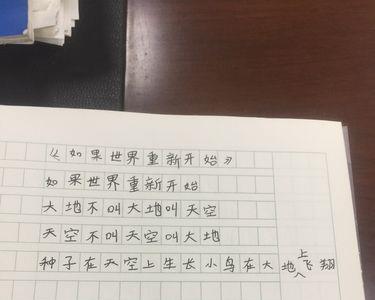 《如果世界重新开始》
如果世界重新开始
大地不叫大地叫天空
天空不叫天空叫大地
种子在天空上生长小鸟在大地上飞翔